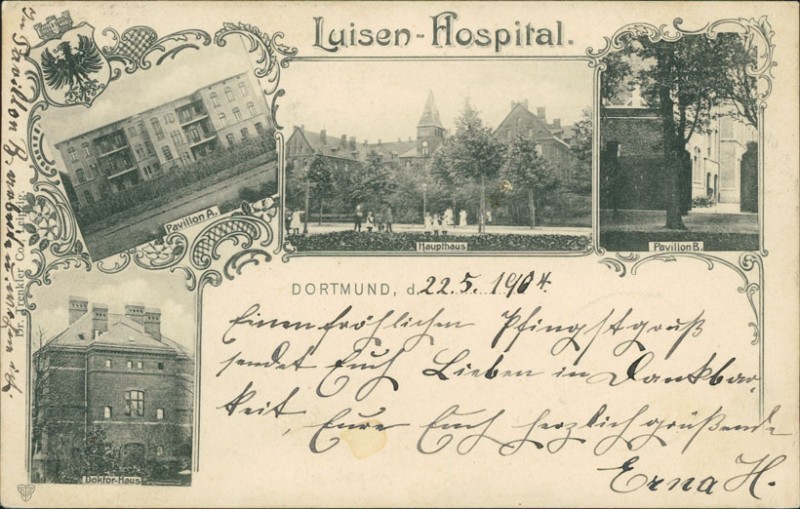 Luisen-Hospital.
Pavillon A.
Haupthaus
Pavillon B.
Doktor-Haus
Dr. Trenkler Co., Leipzig.
DORTMUND, d. 22.5. 1904.
Einen fröhlichen Pfingstgruß
sendet Euch Lieben in Dankbar-
keit, Eure Euch herzlich grüßende
Erna H.
Im Pavillon B.
ich.